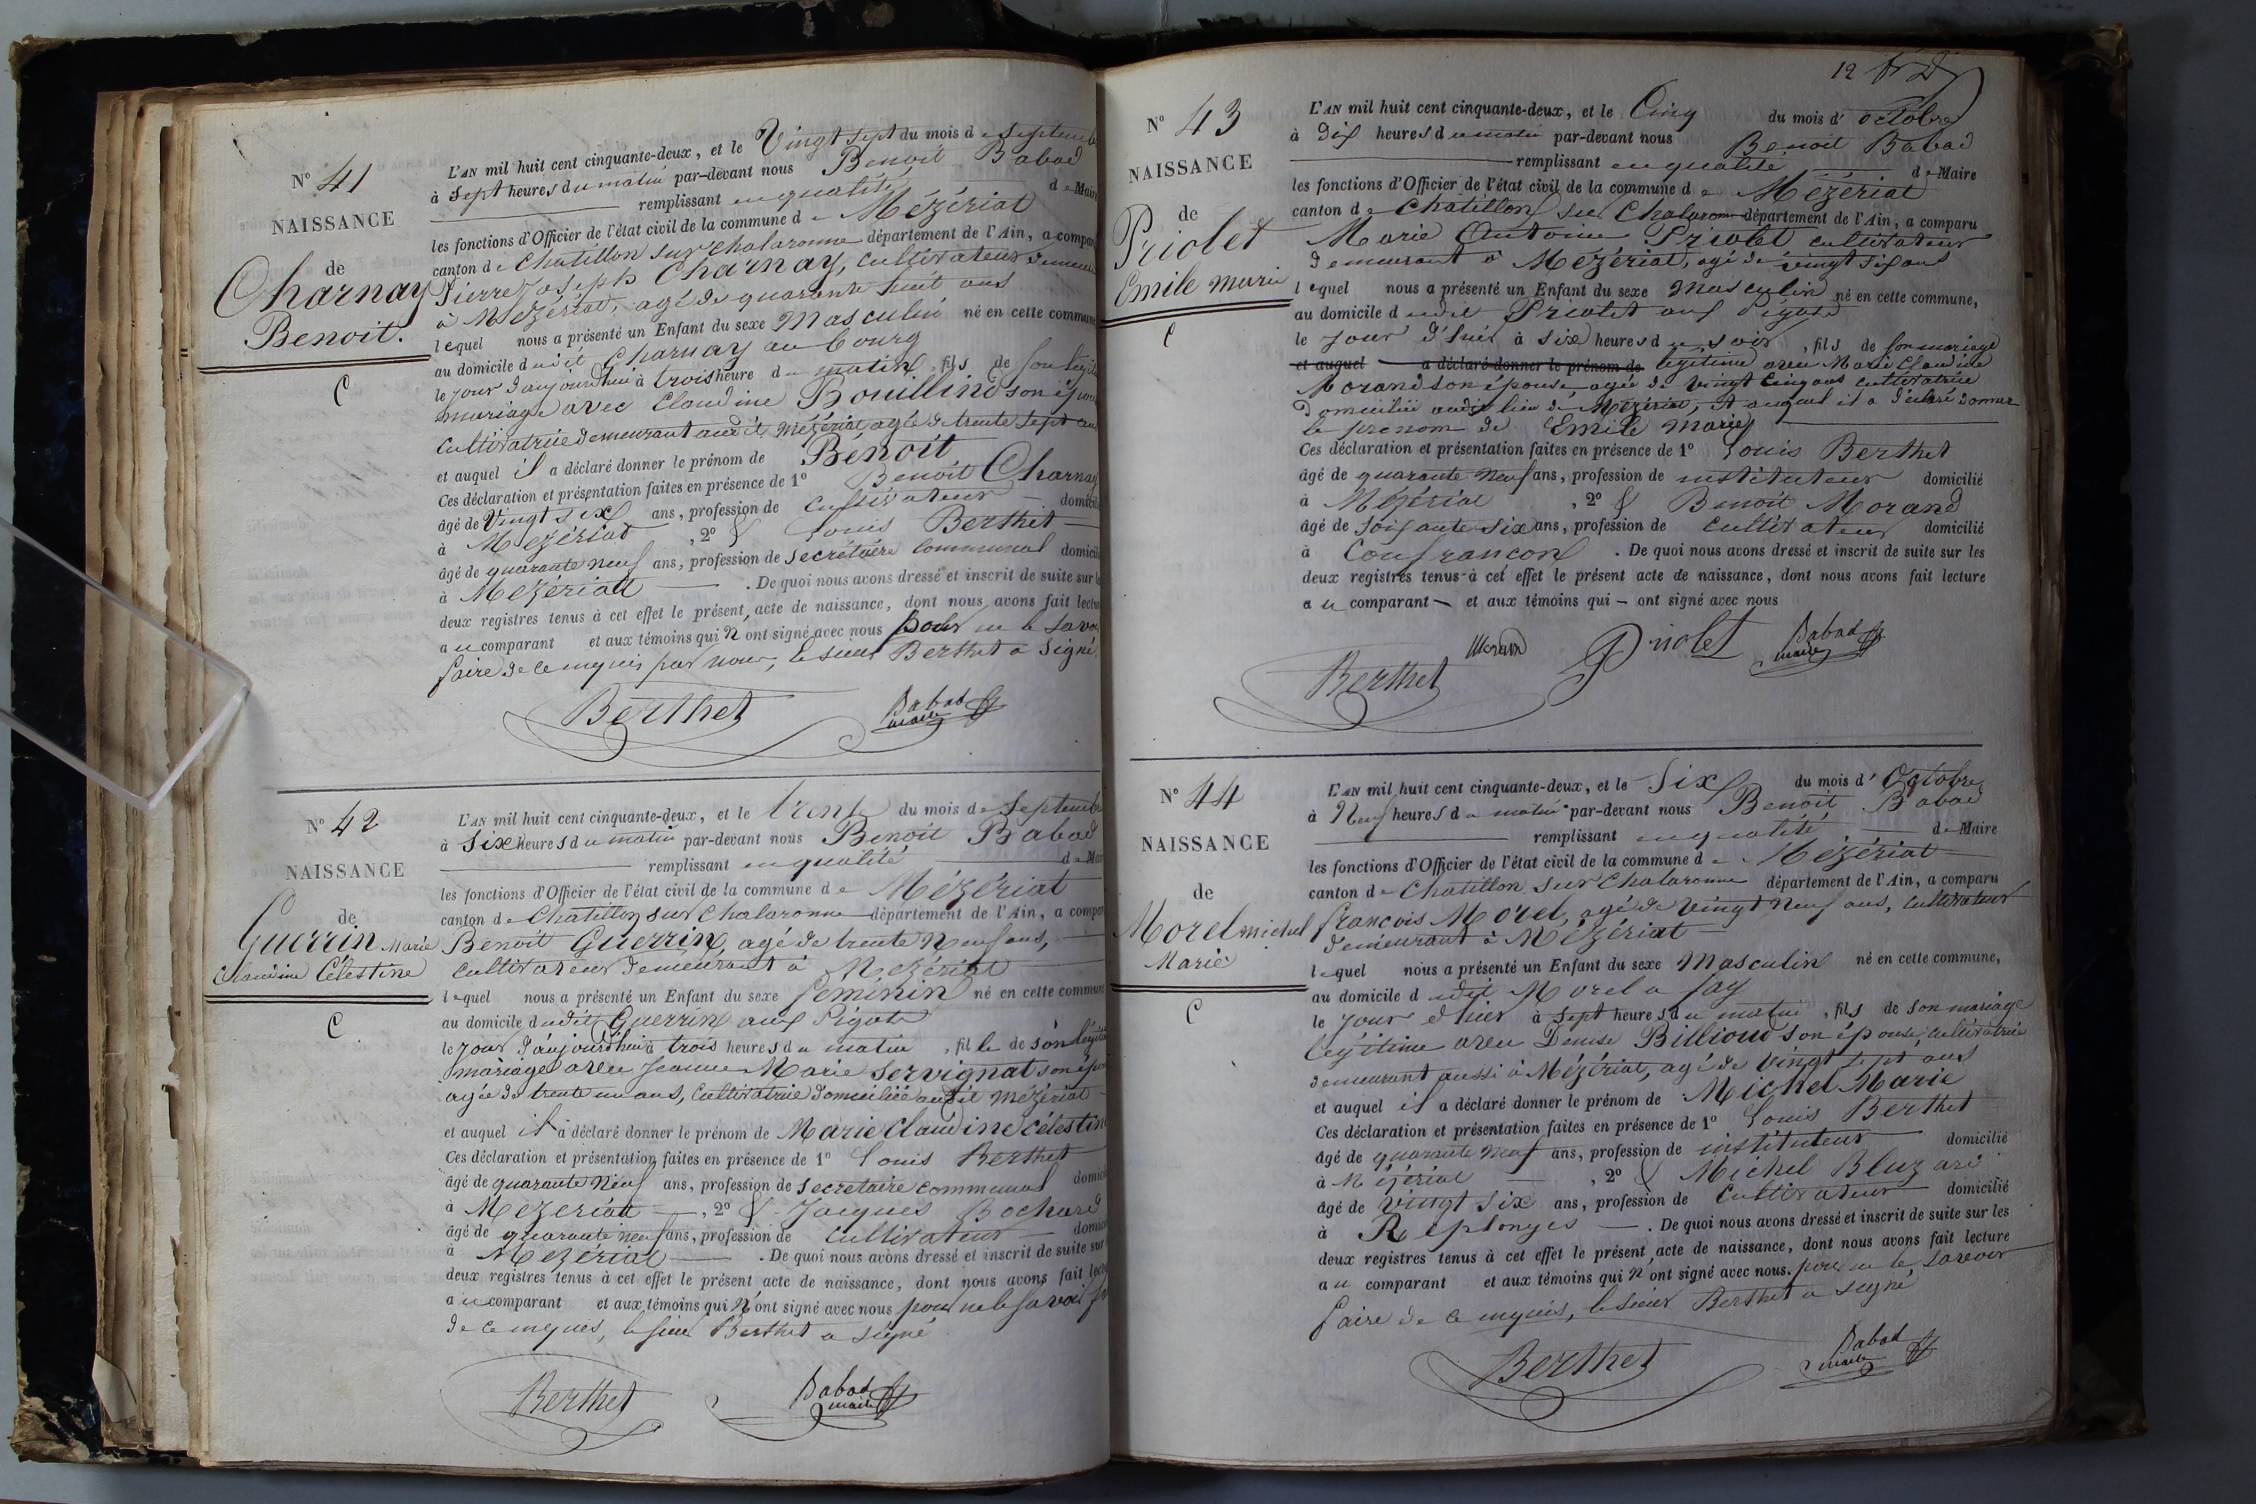 N° 41
NAISSANCE
de
Charnay
Benoit.
C
L'AN mil huit cent cinquante-deux, et le Vingt sept du mois de Septembre
à Sept heures du matin par-devant nous Benoit Babad
remplissant en qualité de Maire
les fonctions d'Officier de l'état civil de la commune de Mézériat
canton de Chatillon sur Chalaronne département de l'Ain, a comparu
Pierre Joseph Charnay, Cultivateur demeurant
à Mézériat, agé de quarante huit ans
lequel nous a présenté un Enfant du sexe Masculin né en cette commune
au domicile dudit Charnay au bourg
le jour d'aujourd'hui à trois heure du matin, fils de son légitime
mariage avec Claudine Bouillina son épouse
Cultivatrice demeurant audit Mézériat agée de trente sept ans
et auquel il a déclaré donner le prénom de Benoit
Ces déclaration et présentation faites en présence de 1° Benoit Charnay
âgé de Vingt six ans, profession de Cultivateur domicilié
à Mézériat, 2° & Louis Berthet
âgé de quarante neuf ans, profession de Secrétaire Communal domicilié
à Mézériat. De quoi nous avons dressé et inscrit de suite sur les
deux registres tenus à cet effet le présent acte de naissance, dont nous avons fait lecture
au comparant et aux témoins qui n'ont signé avec nous pour ne le savoir
faire de ce enquis par nous, le sieur Berthet a signé
Berthet Babad
maire
N° 42
NAISSANCE
de
Guerrin Marie
Claudine Célestine
C
L'AN mil huit cent cinquante-deux, et le trente du mois de Septembre
à Six heures du matin par-devant nous Benoit Babad
remplissant en qualité de Maire
les fonctions d'Officier de l'état civil de la commune de Mézériat
canton de Chatillon sur Chalaronne département de l'Ain, a comparu
Benoit Guerrin, agé de trente neuf ans,
cultivateur demeurant à Mézériat
lequel nous a présenté un Enfant du sexe féminin né en cette commune
au domicile dudit Guerrin aux Pigots
le jour d'aujourd'hui à trois heures du matin, fille de son légitime
mariage avec Jeanne Marie Servignat son épouse
agée de trente un ans, Cultivatrice domiciliée audit Mézériat
et auquel il a déclaré donner le prénom de Marie Claudine Célestine
Ces déclaration et présentation faites en présence de 1° Louis Berthet
âgé de quarante neuf ans, profession de Secretaire communal domicilié
à Mézériat, 2° & Jacques Bochard
âgé de quarante neuf ans, profession de Cultivateur domicilié
à Mézériat. De quoi nous avons dressé et inscrit de suite sur
deux registres tenus à cet effet le présent acte de naissance, dont nous avons fait lecture
au comparant et aux témoins qui n'ont signé avec nous pour ne le savoir
de ce enquis, le sieur Berthet a signé
Berthet Babad
maire
12
N° 43
NAISSANCE
de
Priolet
Emile marie
C
L'AN mil huit cent cinquante-deux, et le Cinq du mois d'octobre
à Dix heures du matin par-devant nous Benoit Babad
remplissant en qualité de Maire
les fonctions d'Officier de l'état civil de la commune de Mézériat
canton de Chatillon sur Chalaronne département de l'Ain, a comparu
Marie Antoine Priolet cultivateur
demeurant à Mézériat, agé de vingt six ans
lequel nous a présenté un Enfant du sexe Masculin né en cette commune,
au domicile dudit Priolet aux
le jour d'hier à six heures du soir, fils de son mariage
et auquel a déclaré donner le prénom de légitime avec Marie Claudine
Morand son épouse agée de vingt cinq ans cultivatrice
domiciliée audit lieu de Mézériat, et auquel il a déclaré donner
le prenom de Emile Marie
Ces déclaration et présentation faites en présence de 1° Louis Berthet
âgé de quarante neuf ans, profession de instituteur domicilié
à Mézériat, 2° & Benoit Morand
âgé de soixante six ans, profession de Cultivateur domicilié
à Confrançon. De quoi nous avons dressé et inscrit de suite sur les
deux registres tenus à cet effet le présent acte de naissance, dont nous avons fait lecture
au comparant et aux témoins qui ont signé avec nous
Berthet Morand Priolet Babad
maire
N° 44
NAISSANCE
de
Morel michel
Marie
C
L'AN mil huit cent cinquante-deux, et le Six du mois d'Octobre
à Neuf heures du matin par-devant nous Benoit Babad
remplissant en qualité de Maire
les fonctions d'Officier de l'état civil de la commune de Mézériat
canton de Chatillon sur Chalaronne département de l'Ain, a comparu
françois Morel, agé de vingt neuf ans, cultivateur
demeurant à Mézériat
lequel nous a présenté un Enfant du sexe Masculin né en cette commune,
au domicile dudit Morel a fay
le jour d'hier à sept heures du matin, fils de son mariage
légitime avec Denise Billioud son épouse, cultivatrice
demeurant aussi à Mézériat, agé de vingt sept ans
et auquel il a déclaré donner le prénom de Michel Marie
Ces déclaration et présentation faites en présence de 1° Louis Berthet
âgé de quarante neuf ans, profession de instituteur domicilié
à Mézériat, 2° & Michel Bluzard
âgé de vingt six ans, profession de Cultivateur domicilié
à Replonges. De quoi nous avons dressé et inscrit de suite sur les
deux registres tenus à cet effet le présent acte de naissance, dont nous avons fait lecture
au comparant et aux témoins qui n'ont signé avec nous. pour ne le savoir
faire de ce enquis, le sieur Berthet a signé
Berthet Babad
maire